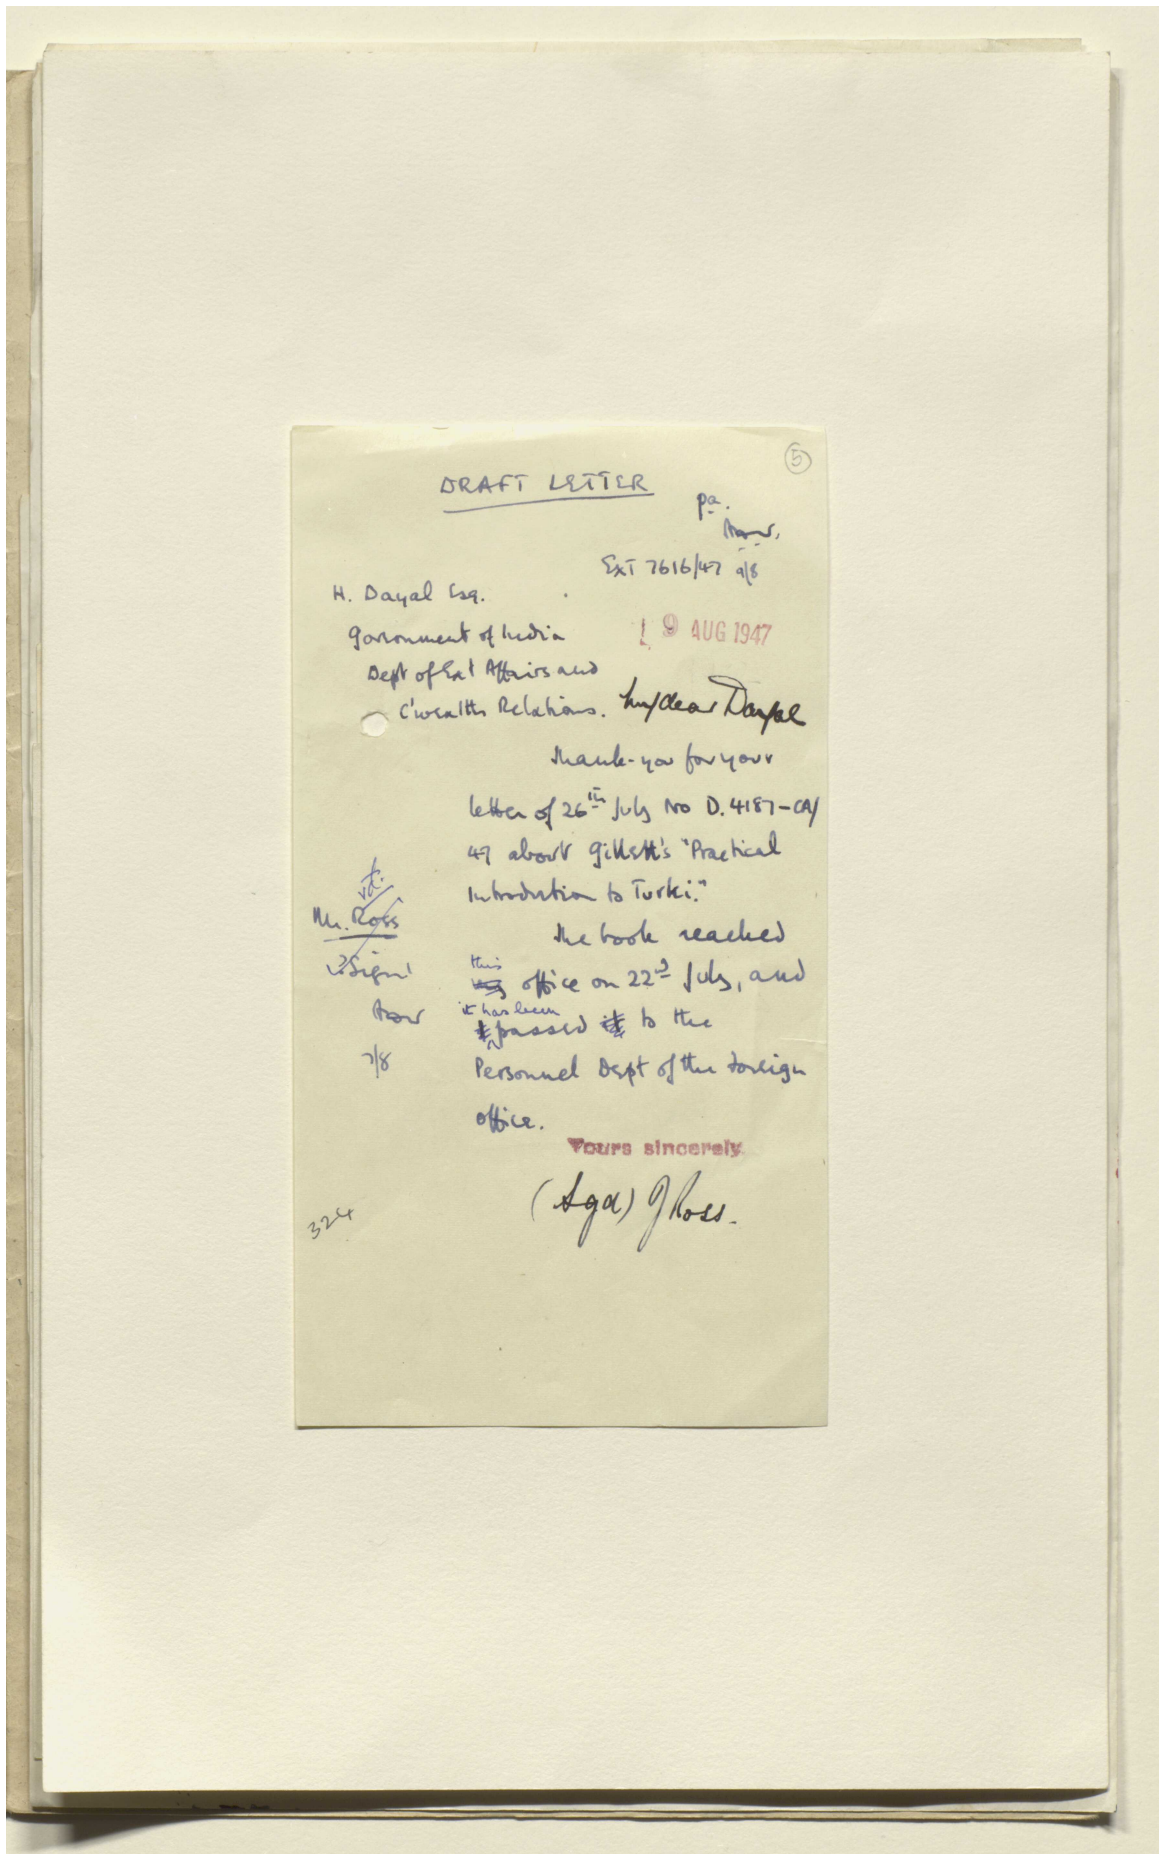 5
DRAFT LETTER
pa.
Ext 7616/47 9/8
H. Dayal Esq.
Government of India
9 AUG 1947
Dept of Ext Affairs and
C'wealth Relations.
My dear Dayal
Thank-you for your
letter of 26th July No D. 4187-CA/
47 about Gillett's "Practical
Introduction to Turki."
Mr. Ross
The book reached
? Sign
this
office on 22nd July, and
it has been
passed it to the
7/8
Personnel Dept of the Foreign
Office.
Yours sincerely
(Sgd) J Ross.
324